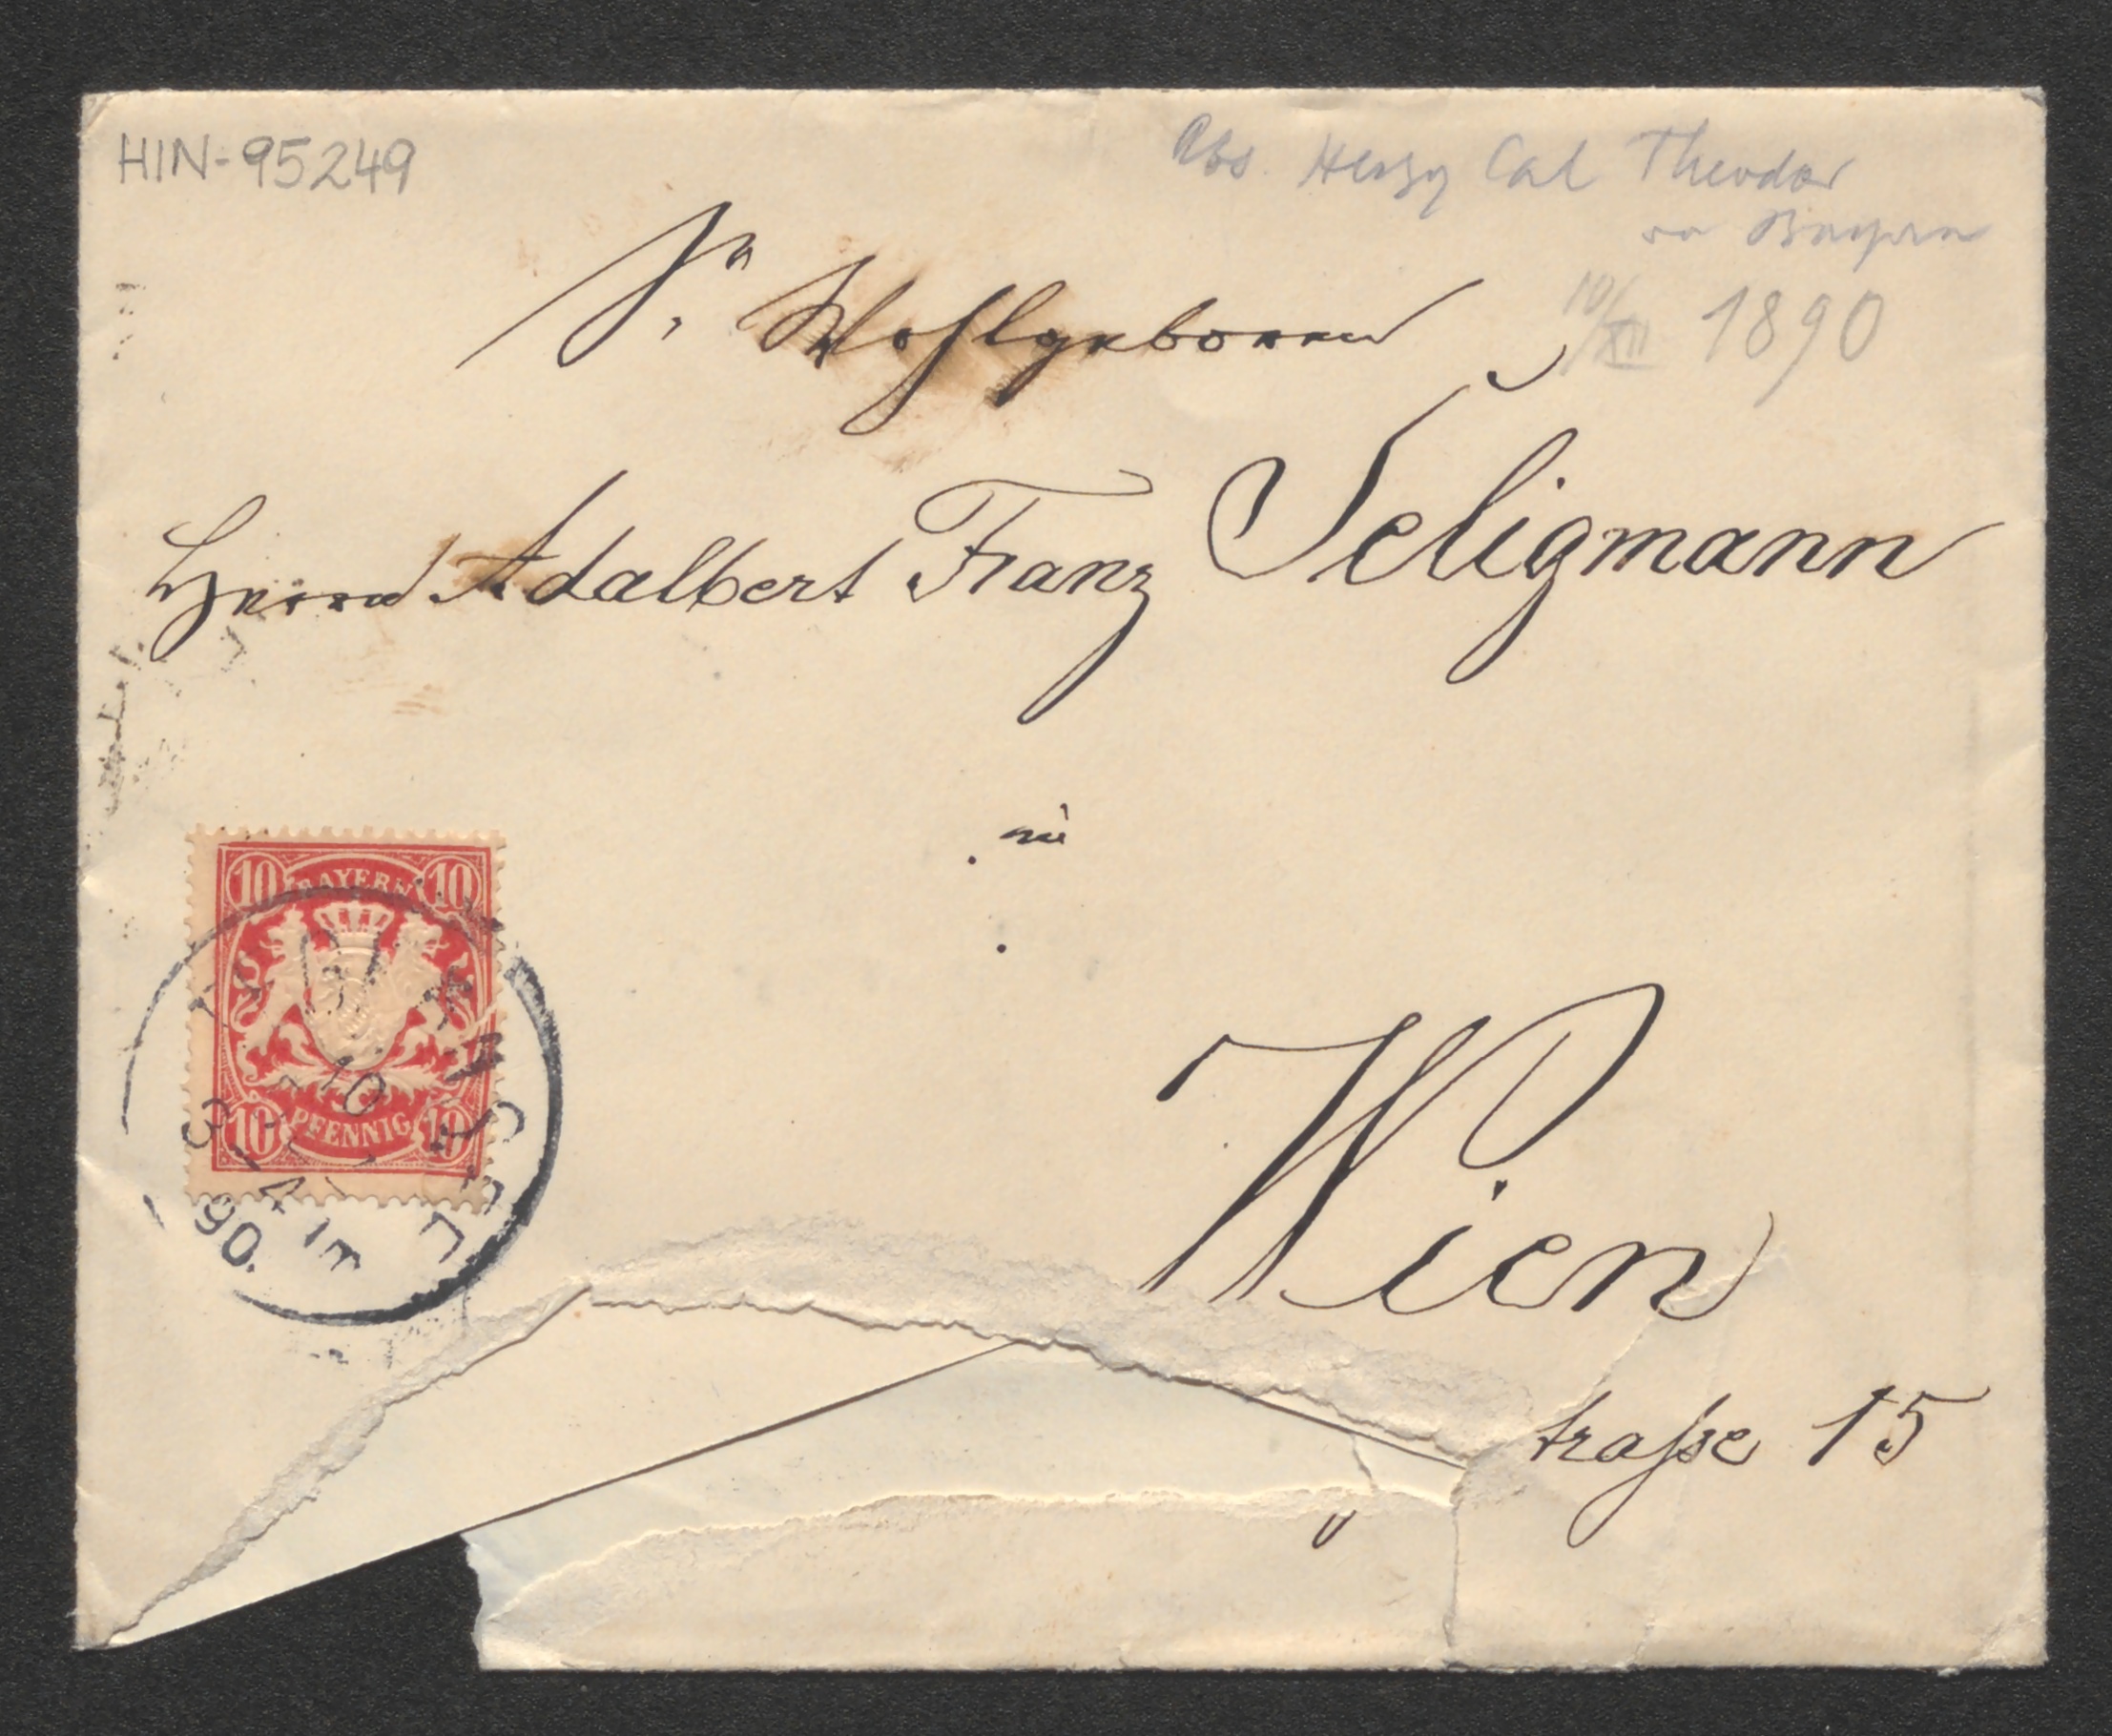 HIN-95249
Abs. Herzog Carl Theodor
von Bayern
10/XII 1890
Sr. Wohlgeboren
Herrn Adalbert Franz Seligmann
in
Wien
traſse 15
10 BAYERN 10
10 PFENNIG 10
10
90.